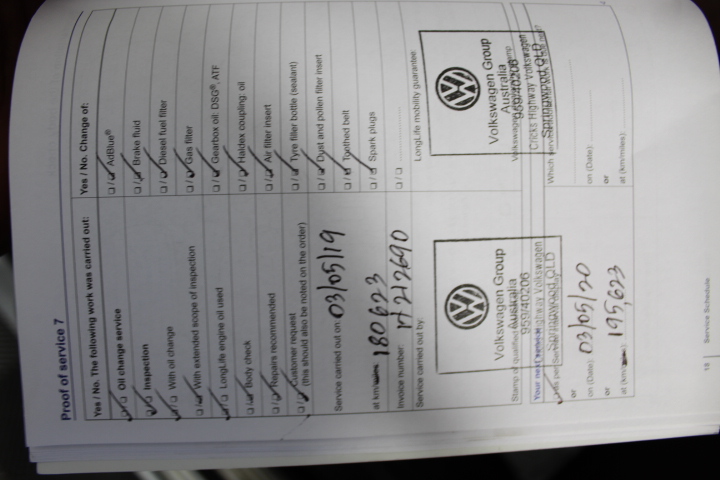 Proof of service 7
Yes / No. The following work was carried out:
Oil change service
Inspection
With oil change
With extended scope of inspection
LongLife engine oil used
Body check
Repairs recommended
Customer request
(this should also be noted on the order)
Service carried out on 03/05/19
at km 180623
Invoice number: 17212690
Service carried out by:
Volkswagen Group
Australia
959/40206
Highway Volkswagen
Springwood QLD
Stamp of qualified
Your next service
on (Date): 03/05/20
or
at (km 195,623
Yes / No. Change of:
AdBlue®
Brake fluid
Diesel fuel filter
Gas filter
Gearbox oil: DSG®, ATF
Haldex coupling: oil
Air filter insert
Tyre filler bottle (sealant)
Dust and pollen filter insert
Toothed belt
Spark plugs
LongLife mobility guarantee
Volkswagen Group
Australia
959/40206
Cricks Highway Volkswagen
Springwood QLD
on (Date):
or
at (km/miles):
18 Service Schedule